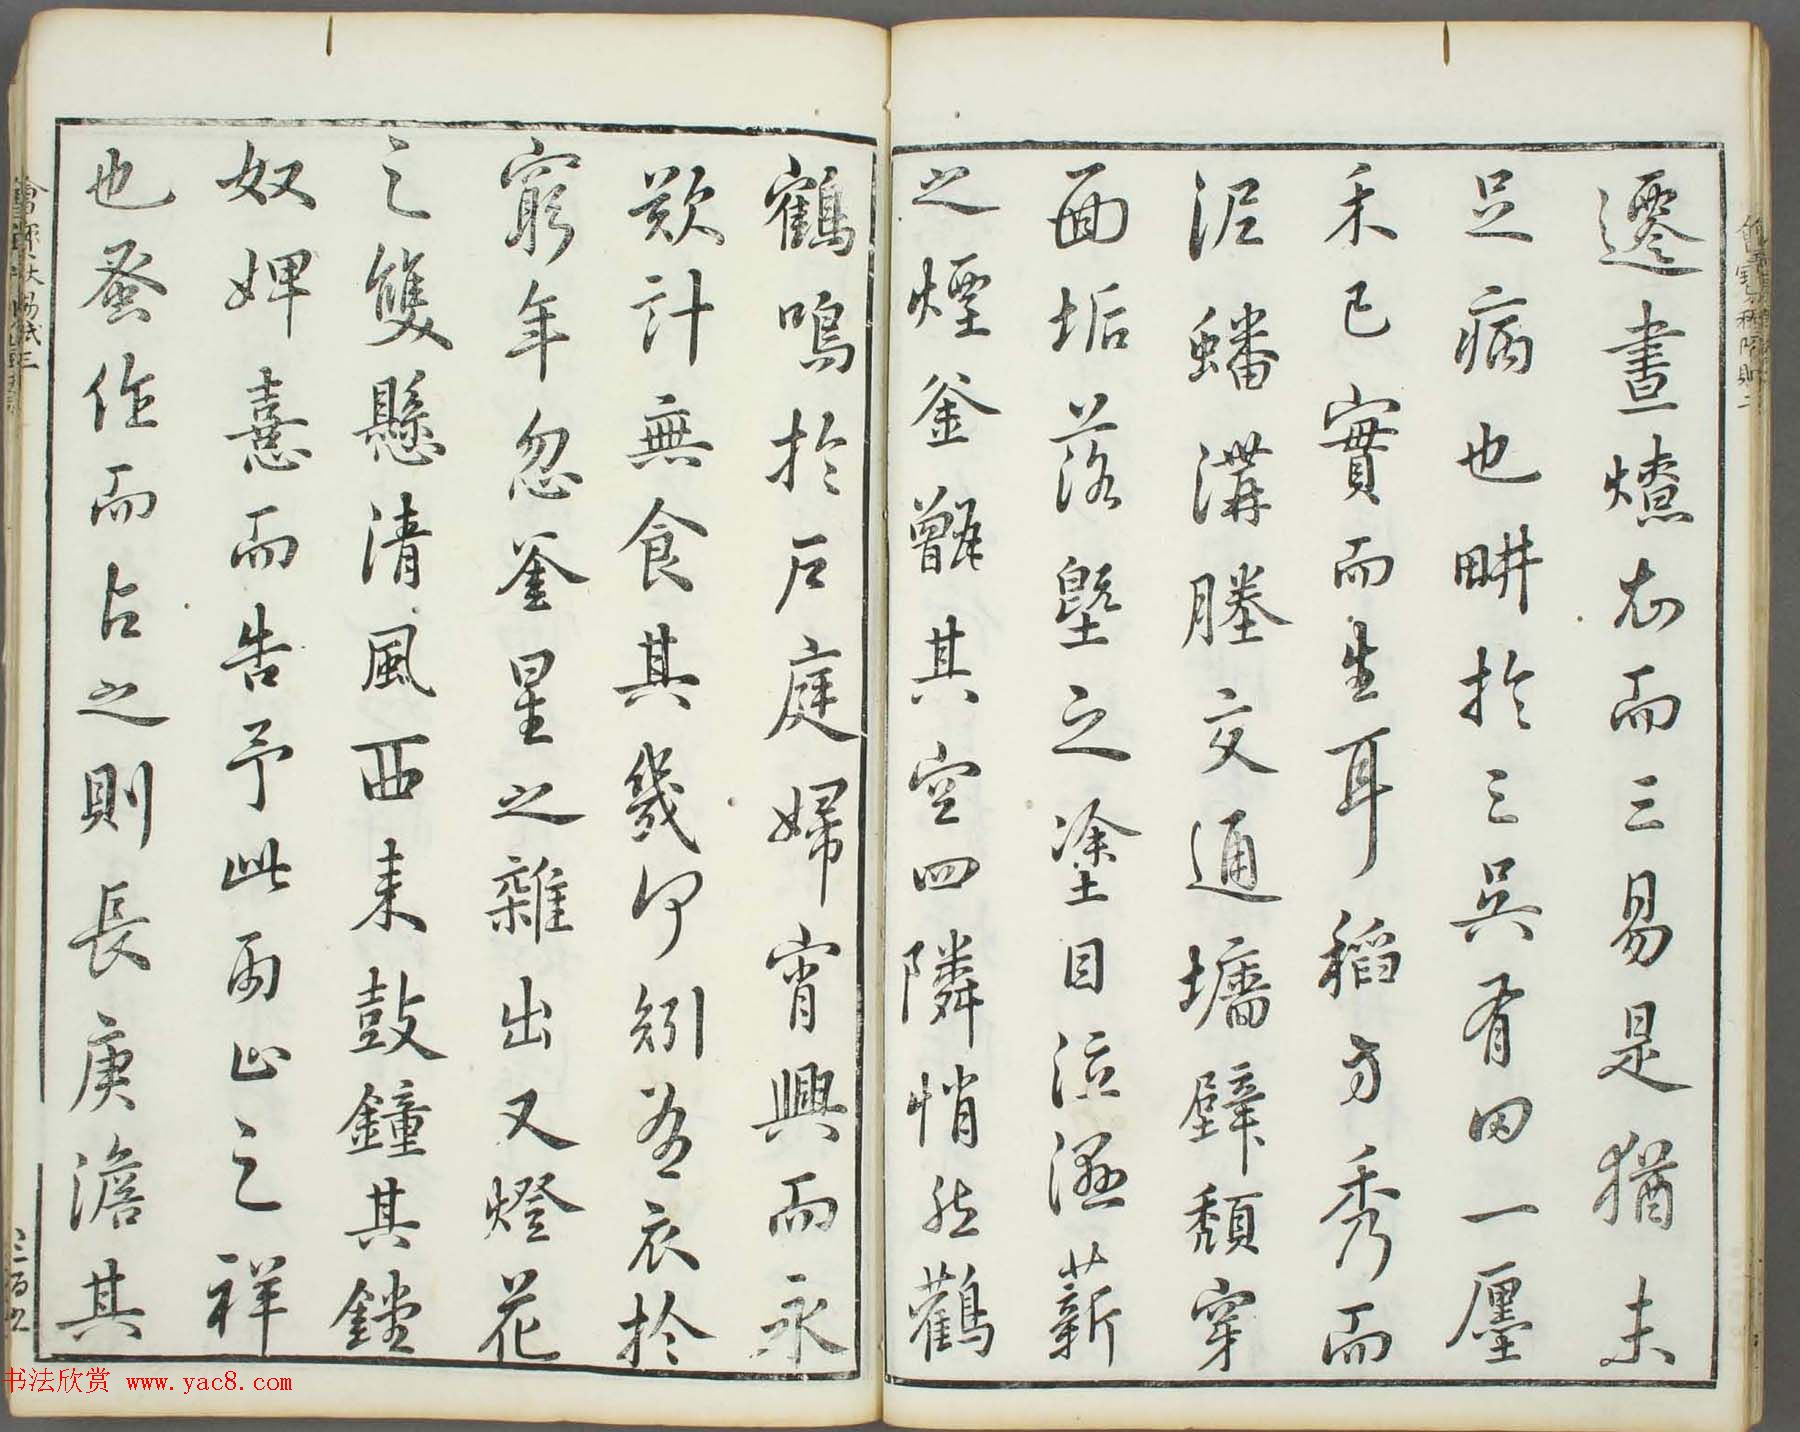 遷晝燎衣而三易是猶未
足病也畊於三吳有田一廛
禾已實而生耳稻方秀而
泥蟠溝塍交通墻壁頹穿
面垢落塈之塗目泣濕薪
之煙釜甑其空四隣悄然鸛
鶴鳴於戶庭婦宵興而永
歎計無食其幾何矧有衣於
窮年忽釜星之雜出又燈花
之雙懸清風西來鼓鐘其鏜
奴婢喜而告予此雨止之祥
也蚤作而占之則長庚澹其
书法欣赏 www.yac8.com